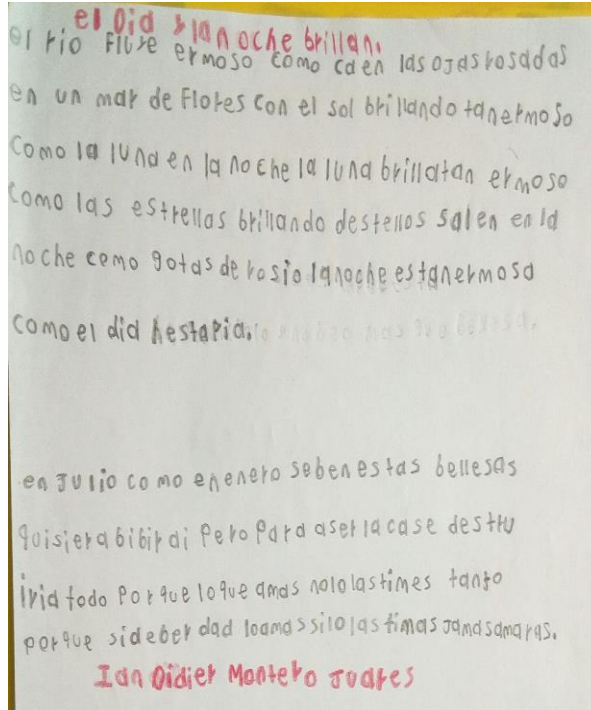 el Dia y la noche brillan.
el rio Fluye ermoso como caen las ojas rosadas
en un mar de Flores con el sol brillando tan ermoso
como la luna en la noche la luna brilla tan ermoso
como las estrellas brillando destellos salen en la
noche como gotas de rosio la noche es tan ermosa
como el dia hestaria.
en Julio como en enero se ben estas bellesas
quisiera bibir ai Pero Para aser la casa se destru
iria todo Por que lo que amas no lo lastimes tanto
por que si deber dad lo amas si lo lastimas Jamas amaras.
Ian Didier Montero Juares